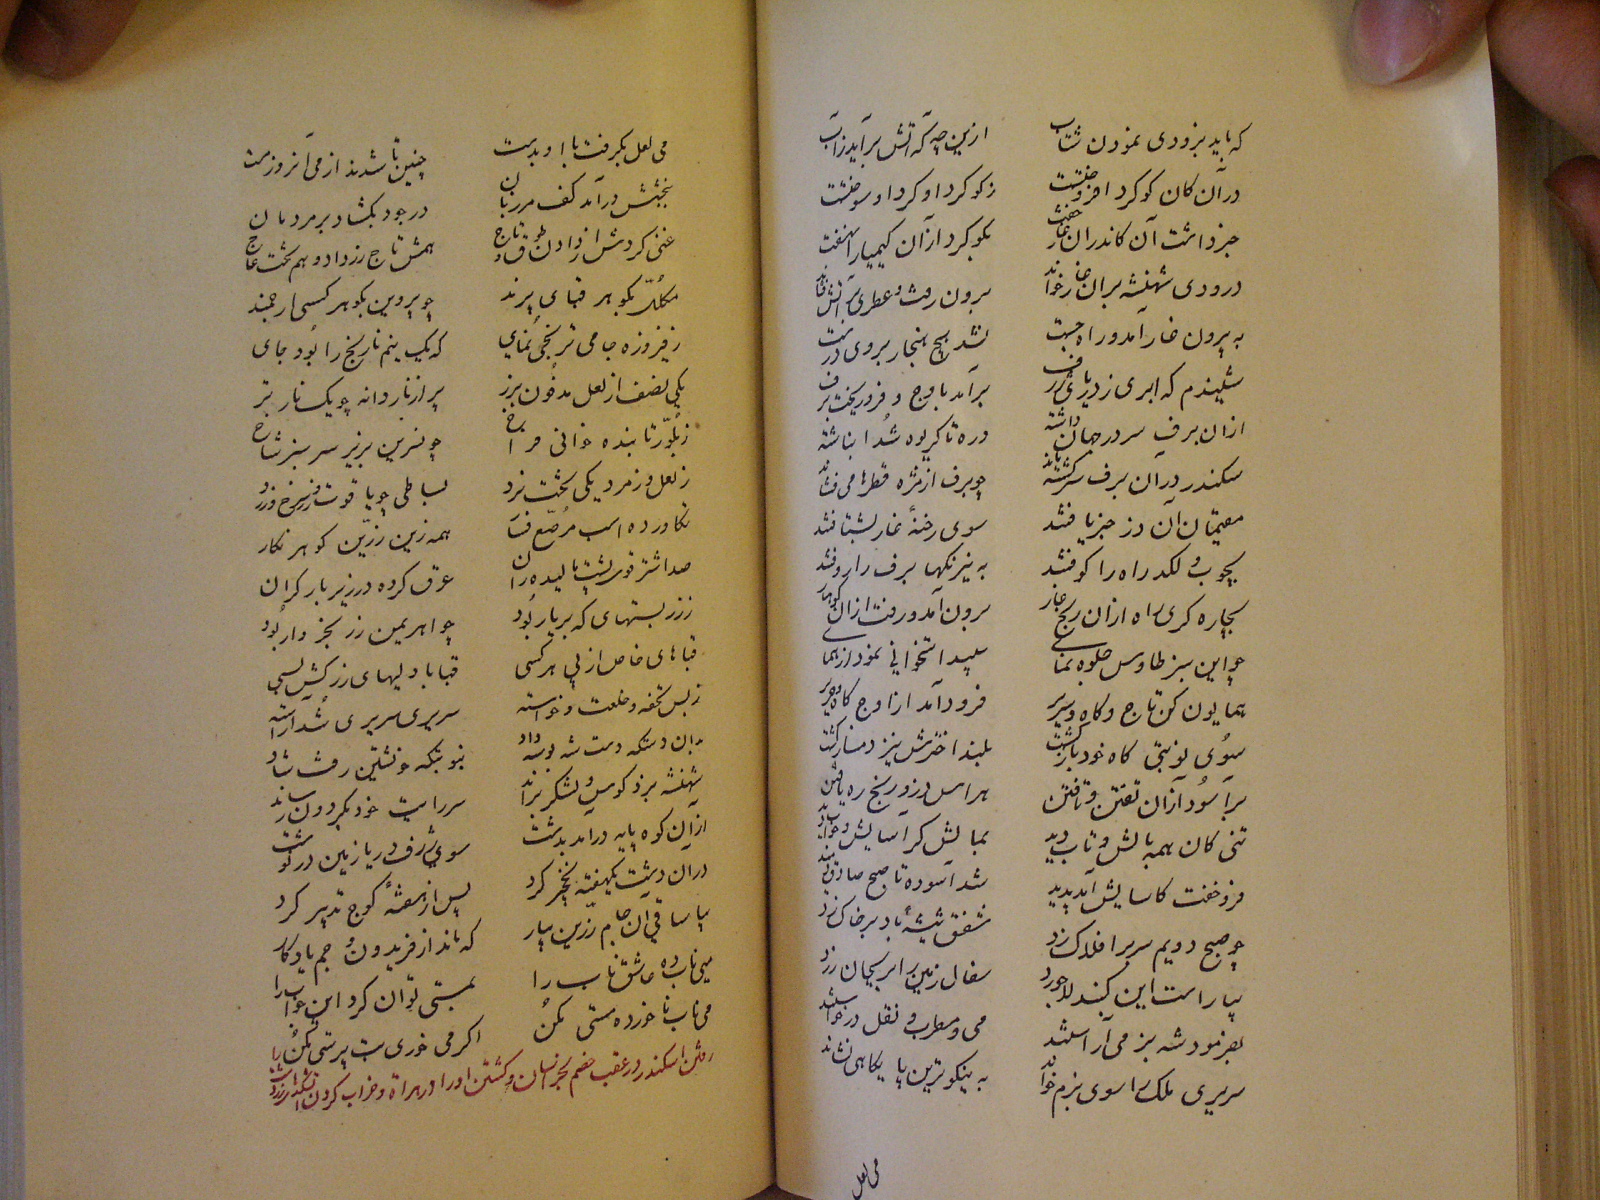 که باید بزودی نمودن شتاب
ازین چه که آتش برآید ز آب
در آن کان گوگرد افروختست
ز گوگرد او گرد او سوختست
خبر داشت آن کاندران غار خفت
بگوگرد ازان کیمیا را نهفت
درودی شهنشه بران غار خواند
برون رفت و عطری بر آتش فشاند
به بیرون غار آمد و راه جست
نشد هیچ هنجار بروی درست
شنیدم که ابری ز دریای ژرف
برآمد باوج و فرو ریخت برف
ازان برف سر در جهان داشته
دره تا کریوه شد انباشته
سکندر در آن برف سرگشته ماند
چو برف از مژه قطرها می فشاند
مقیمان آن دز خبر یافتند
سوی رخنهٔ غار بشتافتند
بچوب و لگد راه را کوفتند
به نیرنگها برف را روفتند
بچاره گری راه ازان رنج غار
برون آمد و رفت ازان کوهسار
چو این سبز طاوس جلوه نمای
سپید استخوانی نمود از همای
همایون کن تاج و گاه و سریر
فرود آمد از اوج گاه
سوی نوبتی گاه خود بازگشت
بلند اخترش نیز دمساز گشت
برآسود ازان تفتن و تافتن
هراس دز و رنج ره یافتن
تنی کان همه مالش و تاب دید
بمالش گر آسایش و خواب دید
فرو خفت کاسایش آمد پدید
شد آسوده تا صبح صادق دمید
چو صبح دویم سر بر افلاک زد
شفق شیشهٔ باده بر خاک زد
بیاراست این گنبد لاجورد
سفال زمین را بریحان زرد
بفرمود شه بزمی آراستند
می و مطرب و نقل درخواستند
سریری ملک را سوی بزم خواند
به نیکوترین پایگاهی نشاند
می لعل
می لعل بگرفت با او بدست
چنین تا شدند از می آنروز مست
ببخشش درآمد کف مرزبان
در جود بگشاد بر مردمان
غنی کردش از دادن طوق و تاج
همش تاج زر داد و هم تخت عاج
مکلل بگوهر قبای پرند
چو پروین بگوهر کسی ارجمند
ز فیروزه جامی ترنجی نمای
که یک نیم نارنج را بود جای
یکی نصف از لعل مدفون بزر
پر از ناردانه چو یک نار تر
ز بلور تابنده خوانی فراخ
چو نسرین بزیر سر سبز شاخ
ز لعل و زمرد یکی تخت نرد
بساطی چو یاقوت و زرنیخ زرد
تکاور ده اسب مرصع فسار
همه زین زرین گوهر نگار
صد اشتر قوی پشت و مالیده ران
عرق کرده در زیر بار گران
ز زر بستهای که بر بار بود
چو اهریمن زر بخروار بود
قباهای خاص از پی هر کسی
قبا با دلیهای زرکش بسی
ز بس تحفه و خلعت و خواسته
سریری سریری شد آراسته
بدان دستگه دست شه بوسه داد
بنو بتگه خویشتن رفت شاد
شهنشه بزد کوس و لشکر براند
سر رایت خود بگردون رساند
ازان کوه پایه درآمد بدشت
سوی ژرف دریا زمین در نوشت
در آن دشت یکهفته نخچیر کرد
پس از هفته کوچ تدبیر کرد
بیا ساقی آن جام زرین بیار
که ماند از فریدون و جم یادگار
می ناب ده عاشق ناب را
بمستی توان کرد این خواب را
می ناب ناخورده مستی مکن
اگر می خوری بت پرستی مکن
رفتن اسکندر در عقب خصم بخراسان و کشتن او را در هراة و خراب کردن